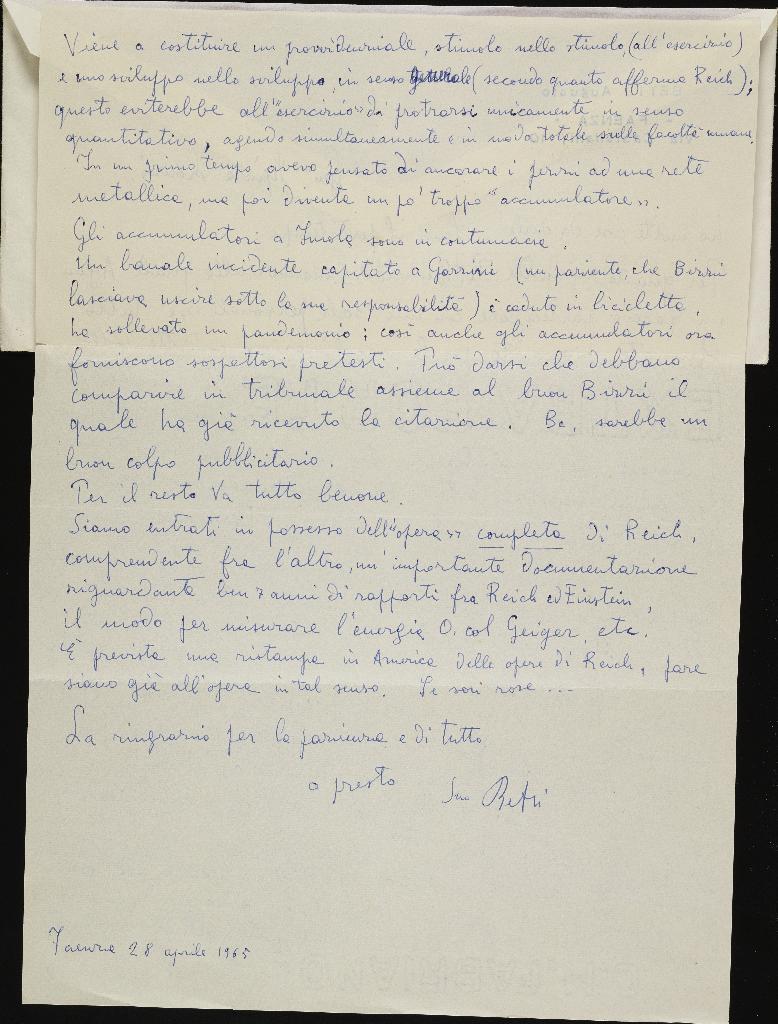 Viene a costituire un provvidenziale, stimolo nello stimolo, (all'esercizio)
e uno sviluppo nello sviluppo, in senso generale (secondo quanto afferma Reich);
questo eviterebbe all'"esercizio" di protrarsi unicamente in senso
quantitativo, agendo simultaneamente e in modo totale sulle facoltà umane.
In un primo tempo avevo pensato di ancorare i perni ad una rete
metallica, ma poi diventa un po' troppo "accumulatore".
Gli accumulatori a Imola sono in contumacia.
Un banale incidente capitato a Gorizia (un paziente, che Bizzi
lasciava uscire sotto la sua responsabilità) è caduto in bicicletta,
ha sollevato un pandemonio; così anche gli accumulatori ora
forniscono sospettosi pretesti. Può darsi che debbano
comparire in tribunale assieme al buon Bizzi il
quale ha già ricevuto la citazione. Be, sarebbe un
buon colpo pubblicitario.
Per il resto va tutto benone.
Siamo entrati in possesso dell'"opera" completa di Reich,
comprendente fra l'altro, un'importante documentazione
riguardante ben 7 anni di rapporti fra Reich ed Einstein,
il modo per misurare l'energia O. col Geiger, etc.
È prevista una ristampa in America delle opere di Reich, pare
siano già all'opera in tal senso. Se son rose ...
La ringrazio per la pazienza e di tutto
a presto
Suo
Faenza 28 aprile 1965